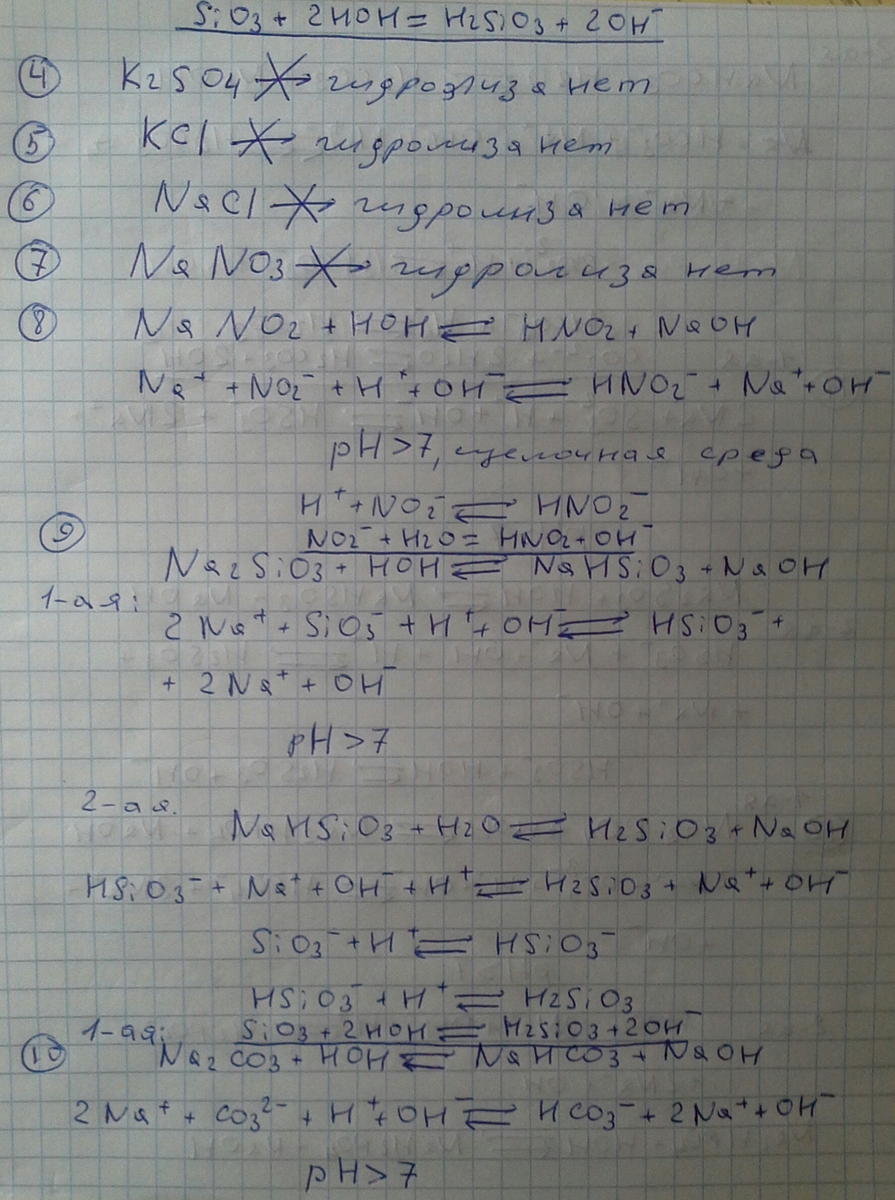 SiO3 + 2HOH = H2SiO3 + 2OH⁻
④ K2SO4 ⇸ гидроэлиза нет
⑤ KCl ⇸ гидролиза нет
⑥ NaCl ⇸ гидролиза нет
⑦ NaNO3 ⇸ гидролиза нет
⑧ NaNO2 + HOH ⇌ HNO2 + NaOH
Na⁺ + NO2⁻ + H⁺ + OH⁻ ⇌ HNO2⁻ + Na⁺ + OH⁻
pH>7, щелочная среда
H⁺ + NO2⁻ ⇌ HNO2⁻
NO2⁻ + H2O = HNO2 + OH⁻
⑨ Na2SiO3 + HOH ⇌ NaHSiO3 + NaOH
1-ая:
2Na⁺ + SiO3⁻ + H⁺ + OH⁻ ⇌ HSiO3⁻ +
+ 2Na⁺ + OH⁻
pH>7
2-ая.
NaHSiO3 + H2O ⇌ H2SiO3 + NaOH
HSiO3⁻ + Na⁺ + OH⁻ + H⁺ ⇌ H2SiO3 + Na⁺ + OH⁻
SiO3⁻ + H⁺ ⇌ HSiO3⁻
HSiO3⁻ + H⁺ ⇌ H2SiO3
1-ая: SiO3 + 2HOH ⇌ H2SiO3 + 2OH⁻
⑩ Na2CO3 + HOH ⇌ NaHCO3 + NaOH
2Na⁺ + CO3²⁻ + H⁺ + OH⁻ ⇌ HCO3⁻ + 2Na⁺ + OH⁻
pH>7